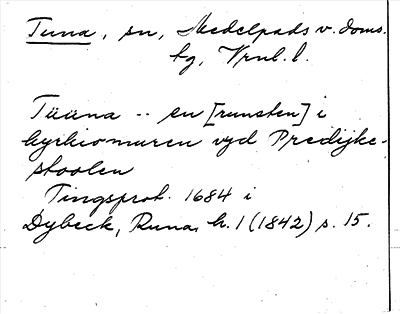 Tuna, sn, Medelpads v. doms.
hg, Vrnl. l.
Tüüna -- en [runsten] i
kyrkiomuren vyd Predijke-
stoolen
Tingsprot. 1684 i
Dybeck, Runa, h. 1 (1842) s. 15.